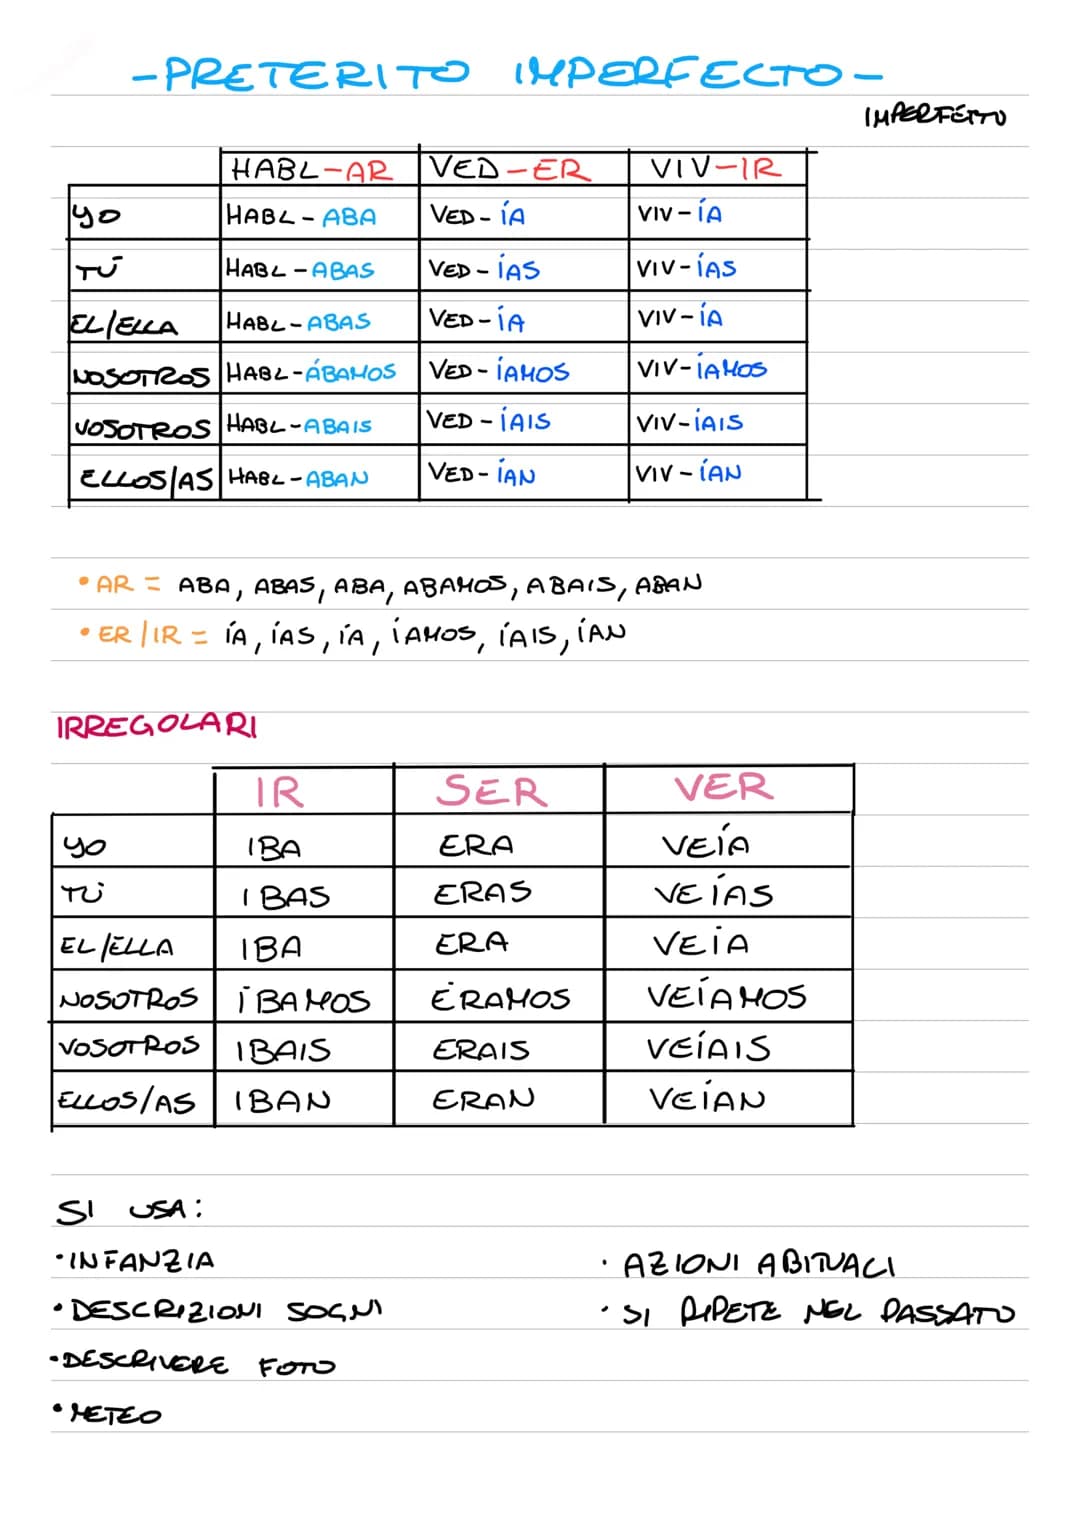 -PRETERITO IMPERFECTO-
IMPERFETTO
HABL-AR VED-ER VIV-IR
YO HABL-ABA VED-ÍA VIV-ÍA
TÚ HABL-ABAS VED-ÍAS VIV-ÍAS
EL/ELLA HABL-ABAS VED-ÍA VIV-ÍA
NOSOTROS HABL-ÁBAMOS VED-ÍAMOS VIV-ÍAMOS
VOSOTROS HABL-ABAIS VED-ÍAIS VIV-ÍAIS
ELLOS/AS HABL-ABAN VED-ÍAN VIV-ÍAN
• AR = ABA, ABAS, ABA, ABAMOS, ABAIS, ABAN
• ER/IR = ÍA, ÍAS, ÍA, ÍAMOS, ÍAIS, ÍAN
IRREGOLARI
IR SER VER
YO IBA ERA VEÍA
TÚ IBAS ERAS VEÍAS
EL/ELLA IBA ERA VEÍA
NOSOTROS ÍBAMOS ÉRAMOS VEÍAMOS
VOSOTROS IBAIS ERAIS VEÍAIS
ELLOS/AS IBAN ERAN VEÍAN
SI USA:
• INFANZIA
• AZIONI ABITUALI
• DESCRIZIONI SOGNI
• SI RIPETE NEL PASSATO
• DESCRIVERE FOTO
• METEO